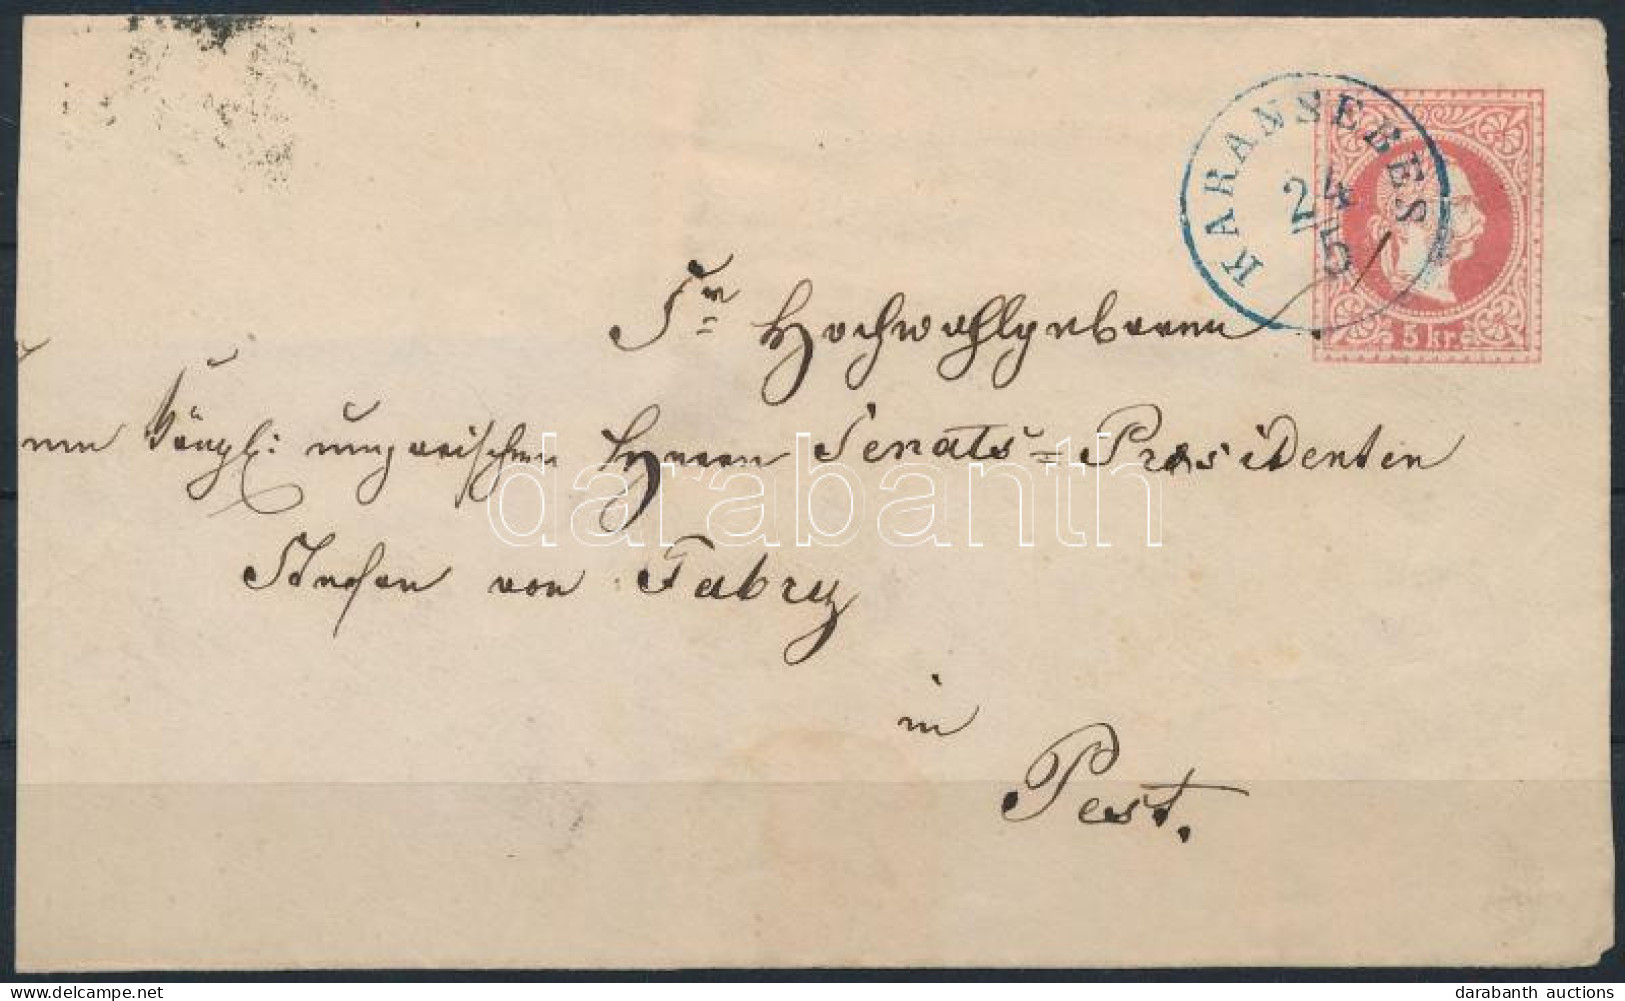 KARANSEBES
24
5
5 kr.
Sr Hochwohlgeboren
königl: ungarischen Herrn Senats = Präsidenten
Stefan von Fabry
in
Pest.
darabanth
© www.darabanth.com
darabanth auctions